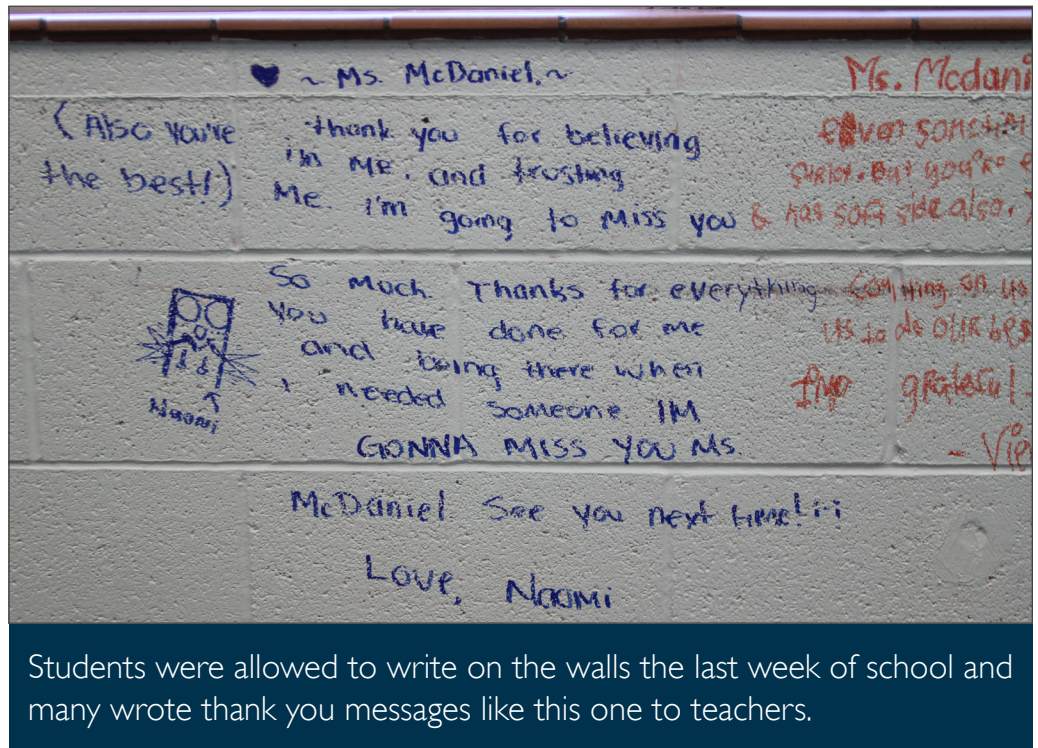 ♥ ~ Ms. McDaniel. ~
(Also you're
the best!)
thank you for believing
in me. and trusting
Me. i'm going to miss you
So much. Thanks for everything
You have done for me
and being there when
i needed someone IM
GONNA MISS YOU Ms.
McDaniel See you next time!
Love, Naomi
Naomi
Ms. Mcdani
But you're
& has soft side also.
on us
us to do our bes
grateful
- Vi
Students were allowed to write on the walls the last week of school and
many wrote thank you messages like this one to teachers.